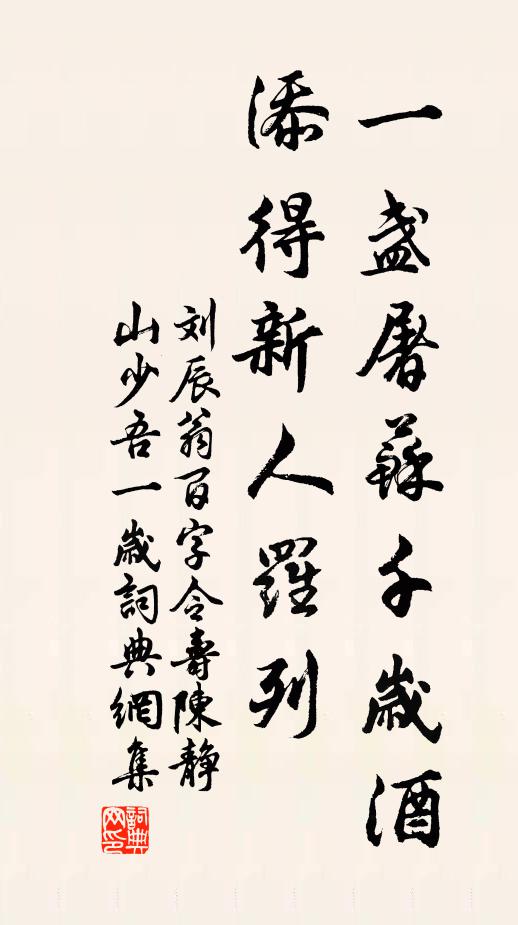 一盏屠蘇千歲酒
添得新人羅列
刘辰翁百字令壽陳静
山少吾一歲詞典網集
詞典网印